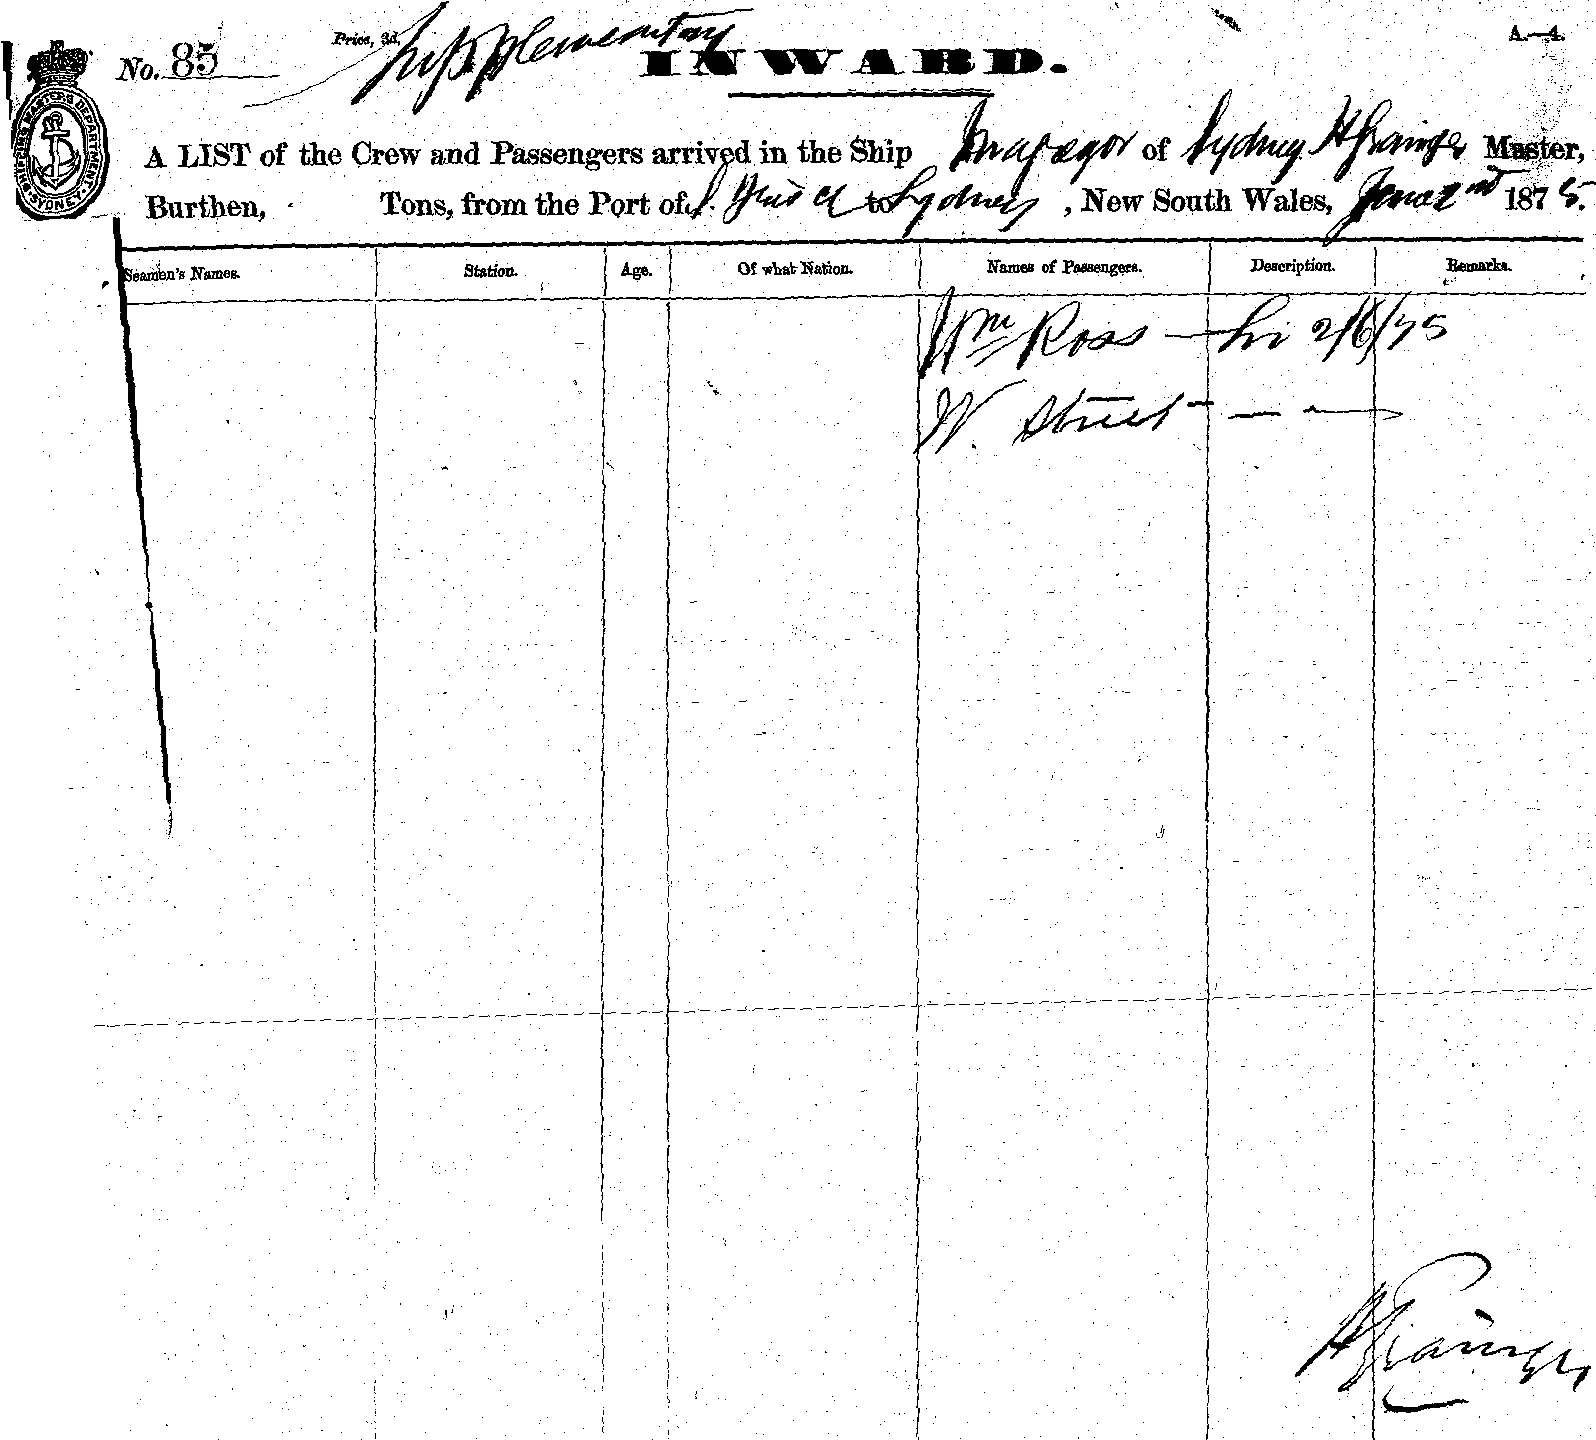 No. 85 Price, 3d. Supplementary INWARD. A.—4.
SHIPPING MASTER'S DEPARTMENT SYDNEY
A LIST of the Crew and Passengers arrived in the Ship of Sydney H Grainger Master,
Burthen, Tons, from the Port of to Sydney , New South Wales, June 2nd 1875.
Seamen's Names. Station. Age. Of what Nation. Names of Passengers. Description. Remarks.
Wm Ross — 2/6/75
W. Street — — —
H Grainger